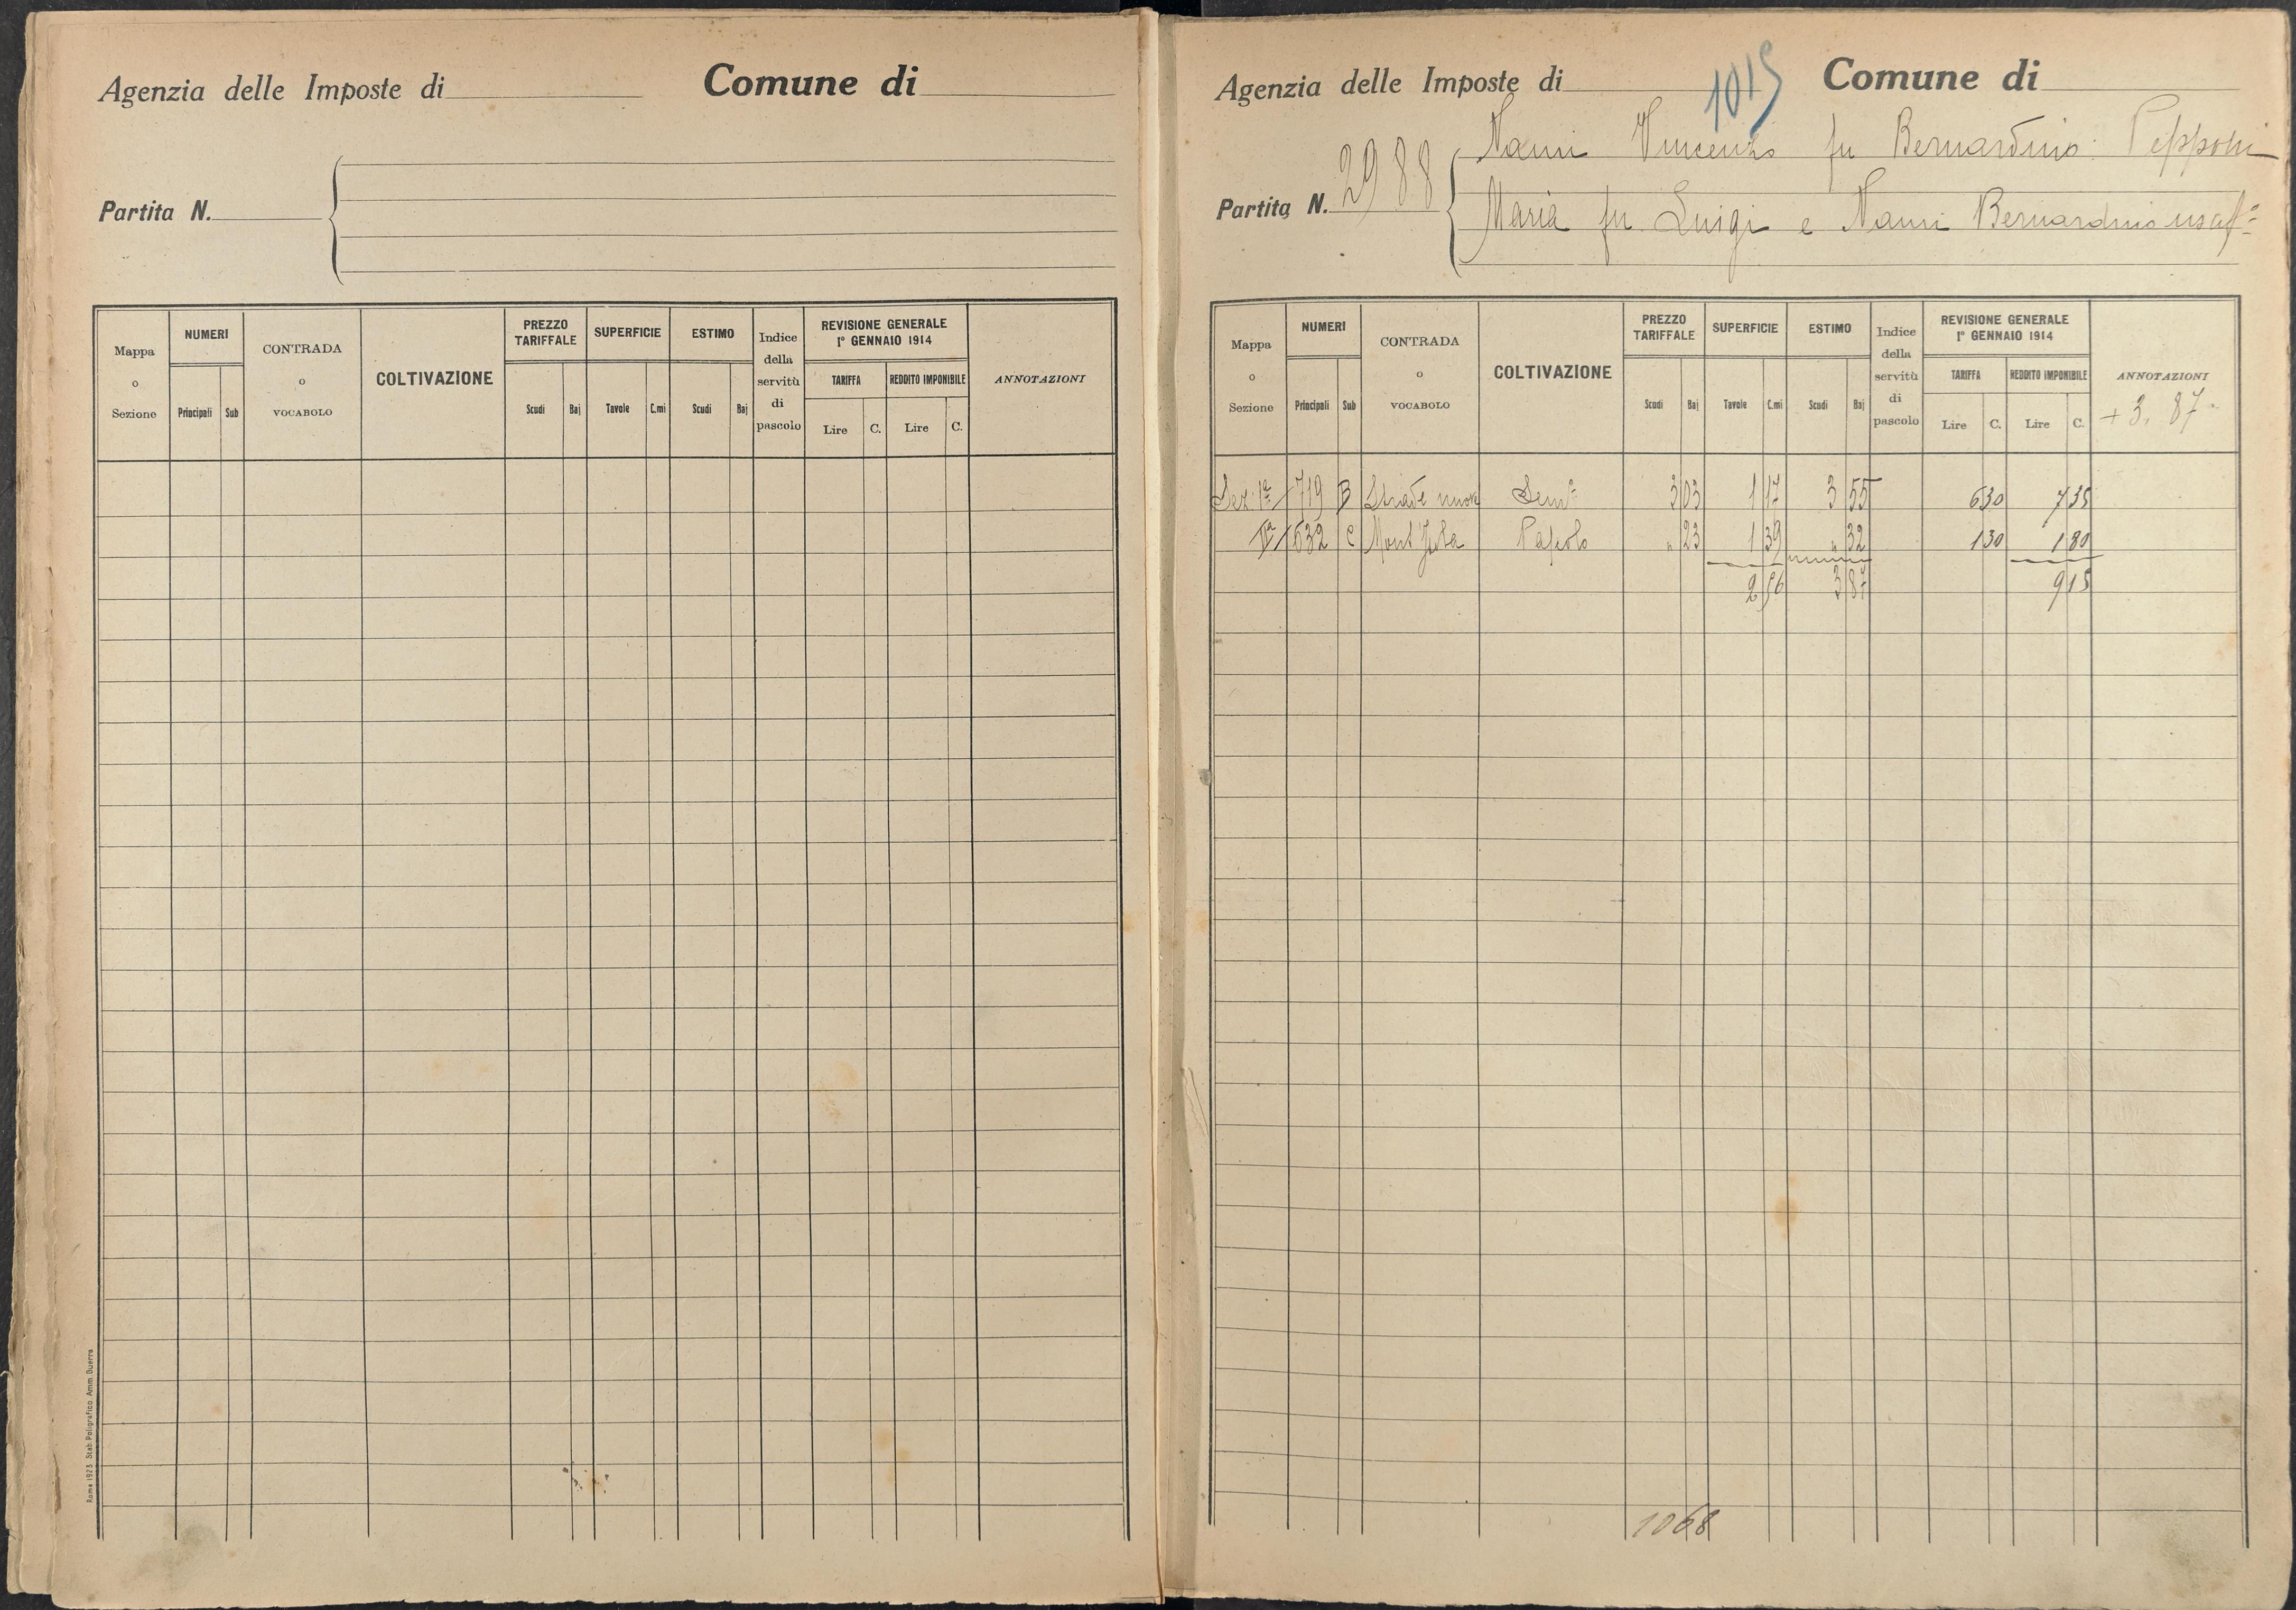 Agenzia delle Imposte di Comune di
Partita N.
Mappa o Sezione NUMERI Principali Sub CONTRADA o VOCABOLO COLTIVAZIONE PREZZO TARIFFALE Scudi Baj SUPERFICIE Tavole C.mi ESTIMO Scudi Baj Indice della servitù di pascolo REVISIONE GENERALE 1° GENNAIO 1914 TARIFFA Lire C. REDDITO IMPONIBILE Lire C. ANNOTAZIONI
Roma 1923 Stab. Poligrafico Amm. Guerra
Agenzia delle Imposte di 1015 Comune di
Nanni Vincenzo fu Bernardino Pepponi
Partita N. 2988
Maria fu Luigi e Nanni Bernardino usuf°
Mappa o Sezione NUMERI Principali Sub CONTRADA o VOCABOLO COLTIVAZIONE PREZZO TARIFFALE Scudi Baj SUPERFICIE Tavole C.mi ESTIMO Scudi Baj Indice della servitù di pascolo REVISIONE GENERALE 1° GENNAIO 1914 TARIFFA Lire C. REDDITO IMPONIBILE Lire C. ANNOTAZIONI
+ 3. 87
Sez. 1ª 719 B Strade nuove Sem° 3 03 1 17 3 55 6 30 7 35
632 C Pascolo " 23 1 39 " 32 1 30 1 80
2 56 3 87 9 15
1068